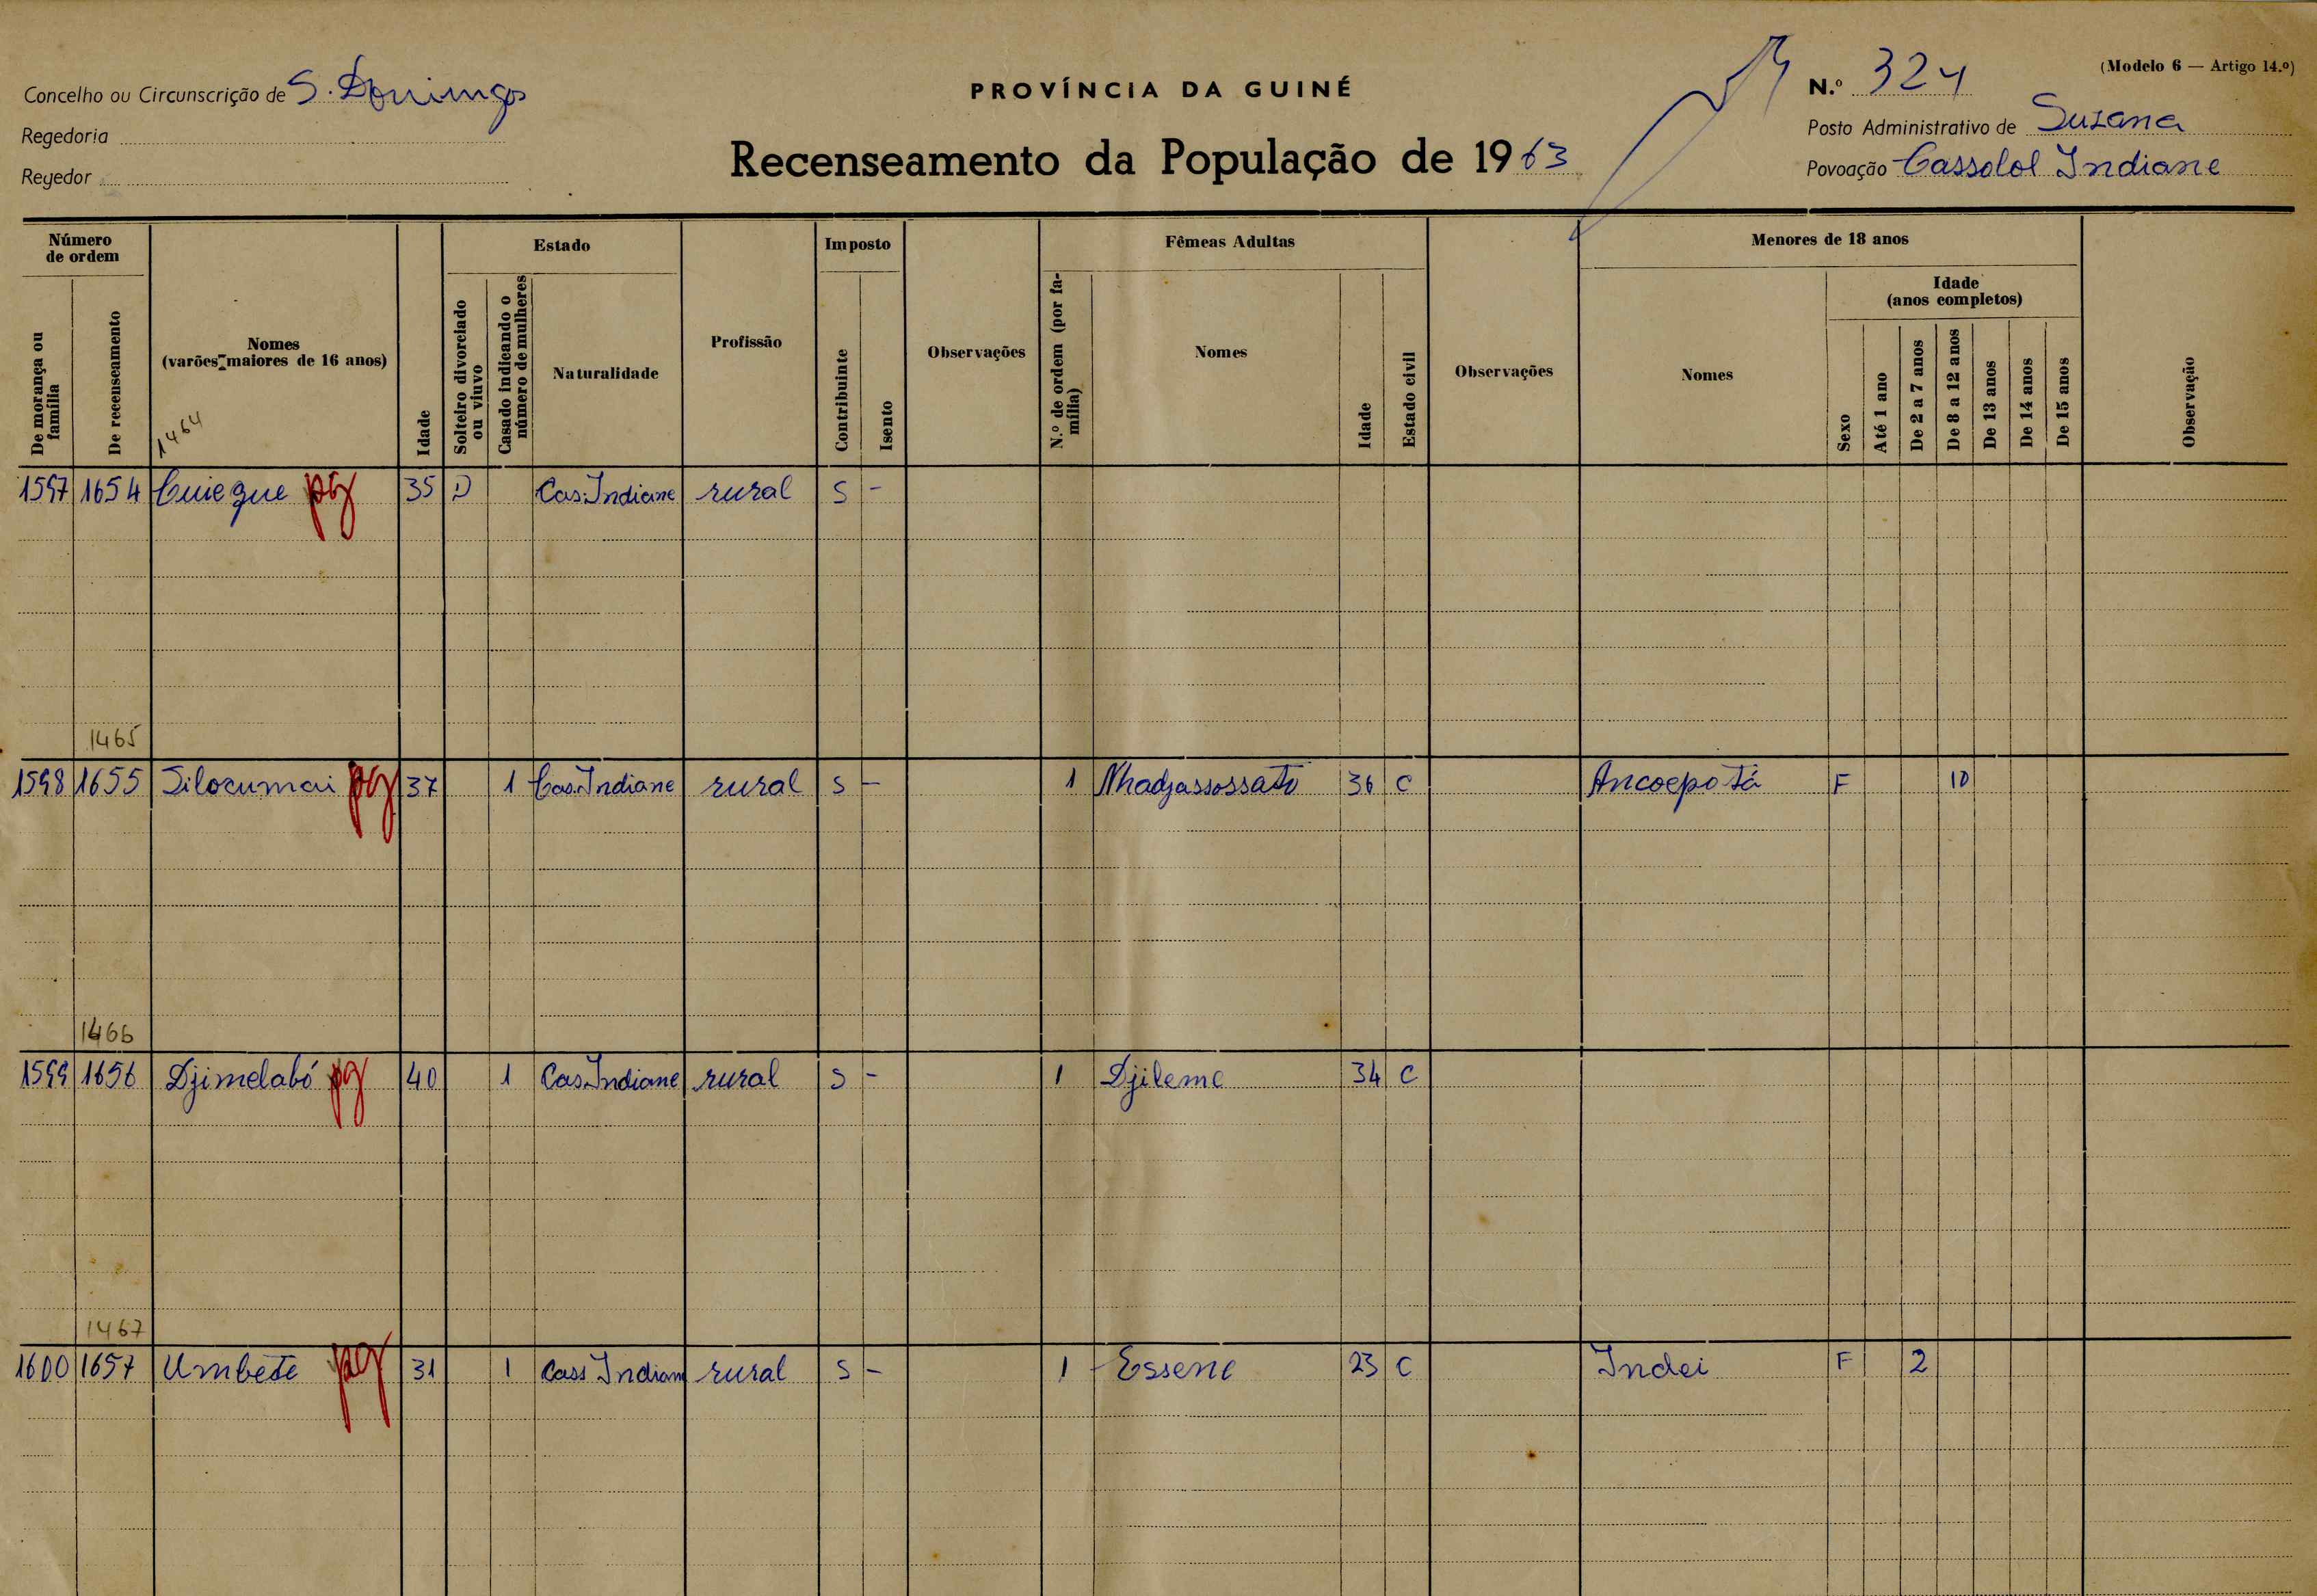 Concelho ou Circunscrição de S. Domingos
Regedoria
Regedor
PROVÍNCIA DA GUINÉ
Recenseamento da População de 1963
(Modelo 6 — Artigo 14.º)
N.º 324
Posto Administrativo de Suzana
Povoação Cassolol Indiane
Número de ordem
De morança ou família
De recenseamento
Nomes
(varões maiores de 16 anos)
1464
Idade
Estado
Solteiro divorciado ou viuvo
Casado indicando o número de mulheres
Naturalidade
Profissão
Imposto
Contribuinte
Isento
Observações
Fêmeas Adultas
N.º de ordem (por família)
Nomes
Idade
Estado civil
Observações
Menores de 18 anos
Nomes
Sexo
Idade
(anos completos)
Até 1 ano
De 2 a 7 anos
De 8 a 12 anos
De 13 anos
De 14 anos
De 15 anos
Observação
1597 1654 Cuieque pg 35 D Cas.Indiane rural S -
1465
1598 1655 Silocumai pg 37 1 Cas.Indiane rural S - 1 Nhadjassossato 36 C Ancoepo tá F 10
1466
1599 1656 Djimelabó pg 40 1 Cas.Indiane rural S - 1 Djileme 34 C
1467
1600 1657 Umbete pg 31 1 Cass Indian rural S - 1 Essene 23 C Indei F 2